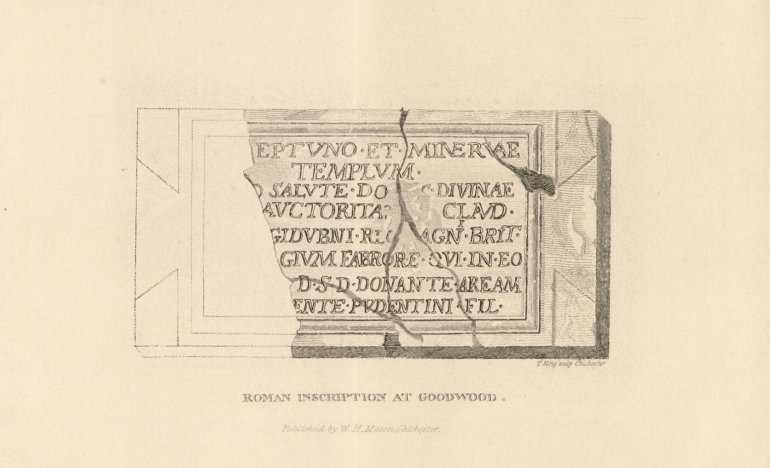 EPTVNO·ET·MINERVAE
TEMPLVM·
O SALVTE·DO C·DIVINAE
AVCTORITA CLAVD·
GIDVBNI·R AGNI·BRIT·
GIVM·FABRORE·QVI·IN·EO
D·S·D·DONANTE·AREAM
ENTE·PVDENTINI·FIL·
T. King sculp Chichester
ROMAN INSCRIPTION AT GOODWOOD.
Published by W. H. Mason, Chichester.